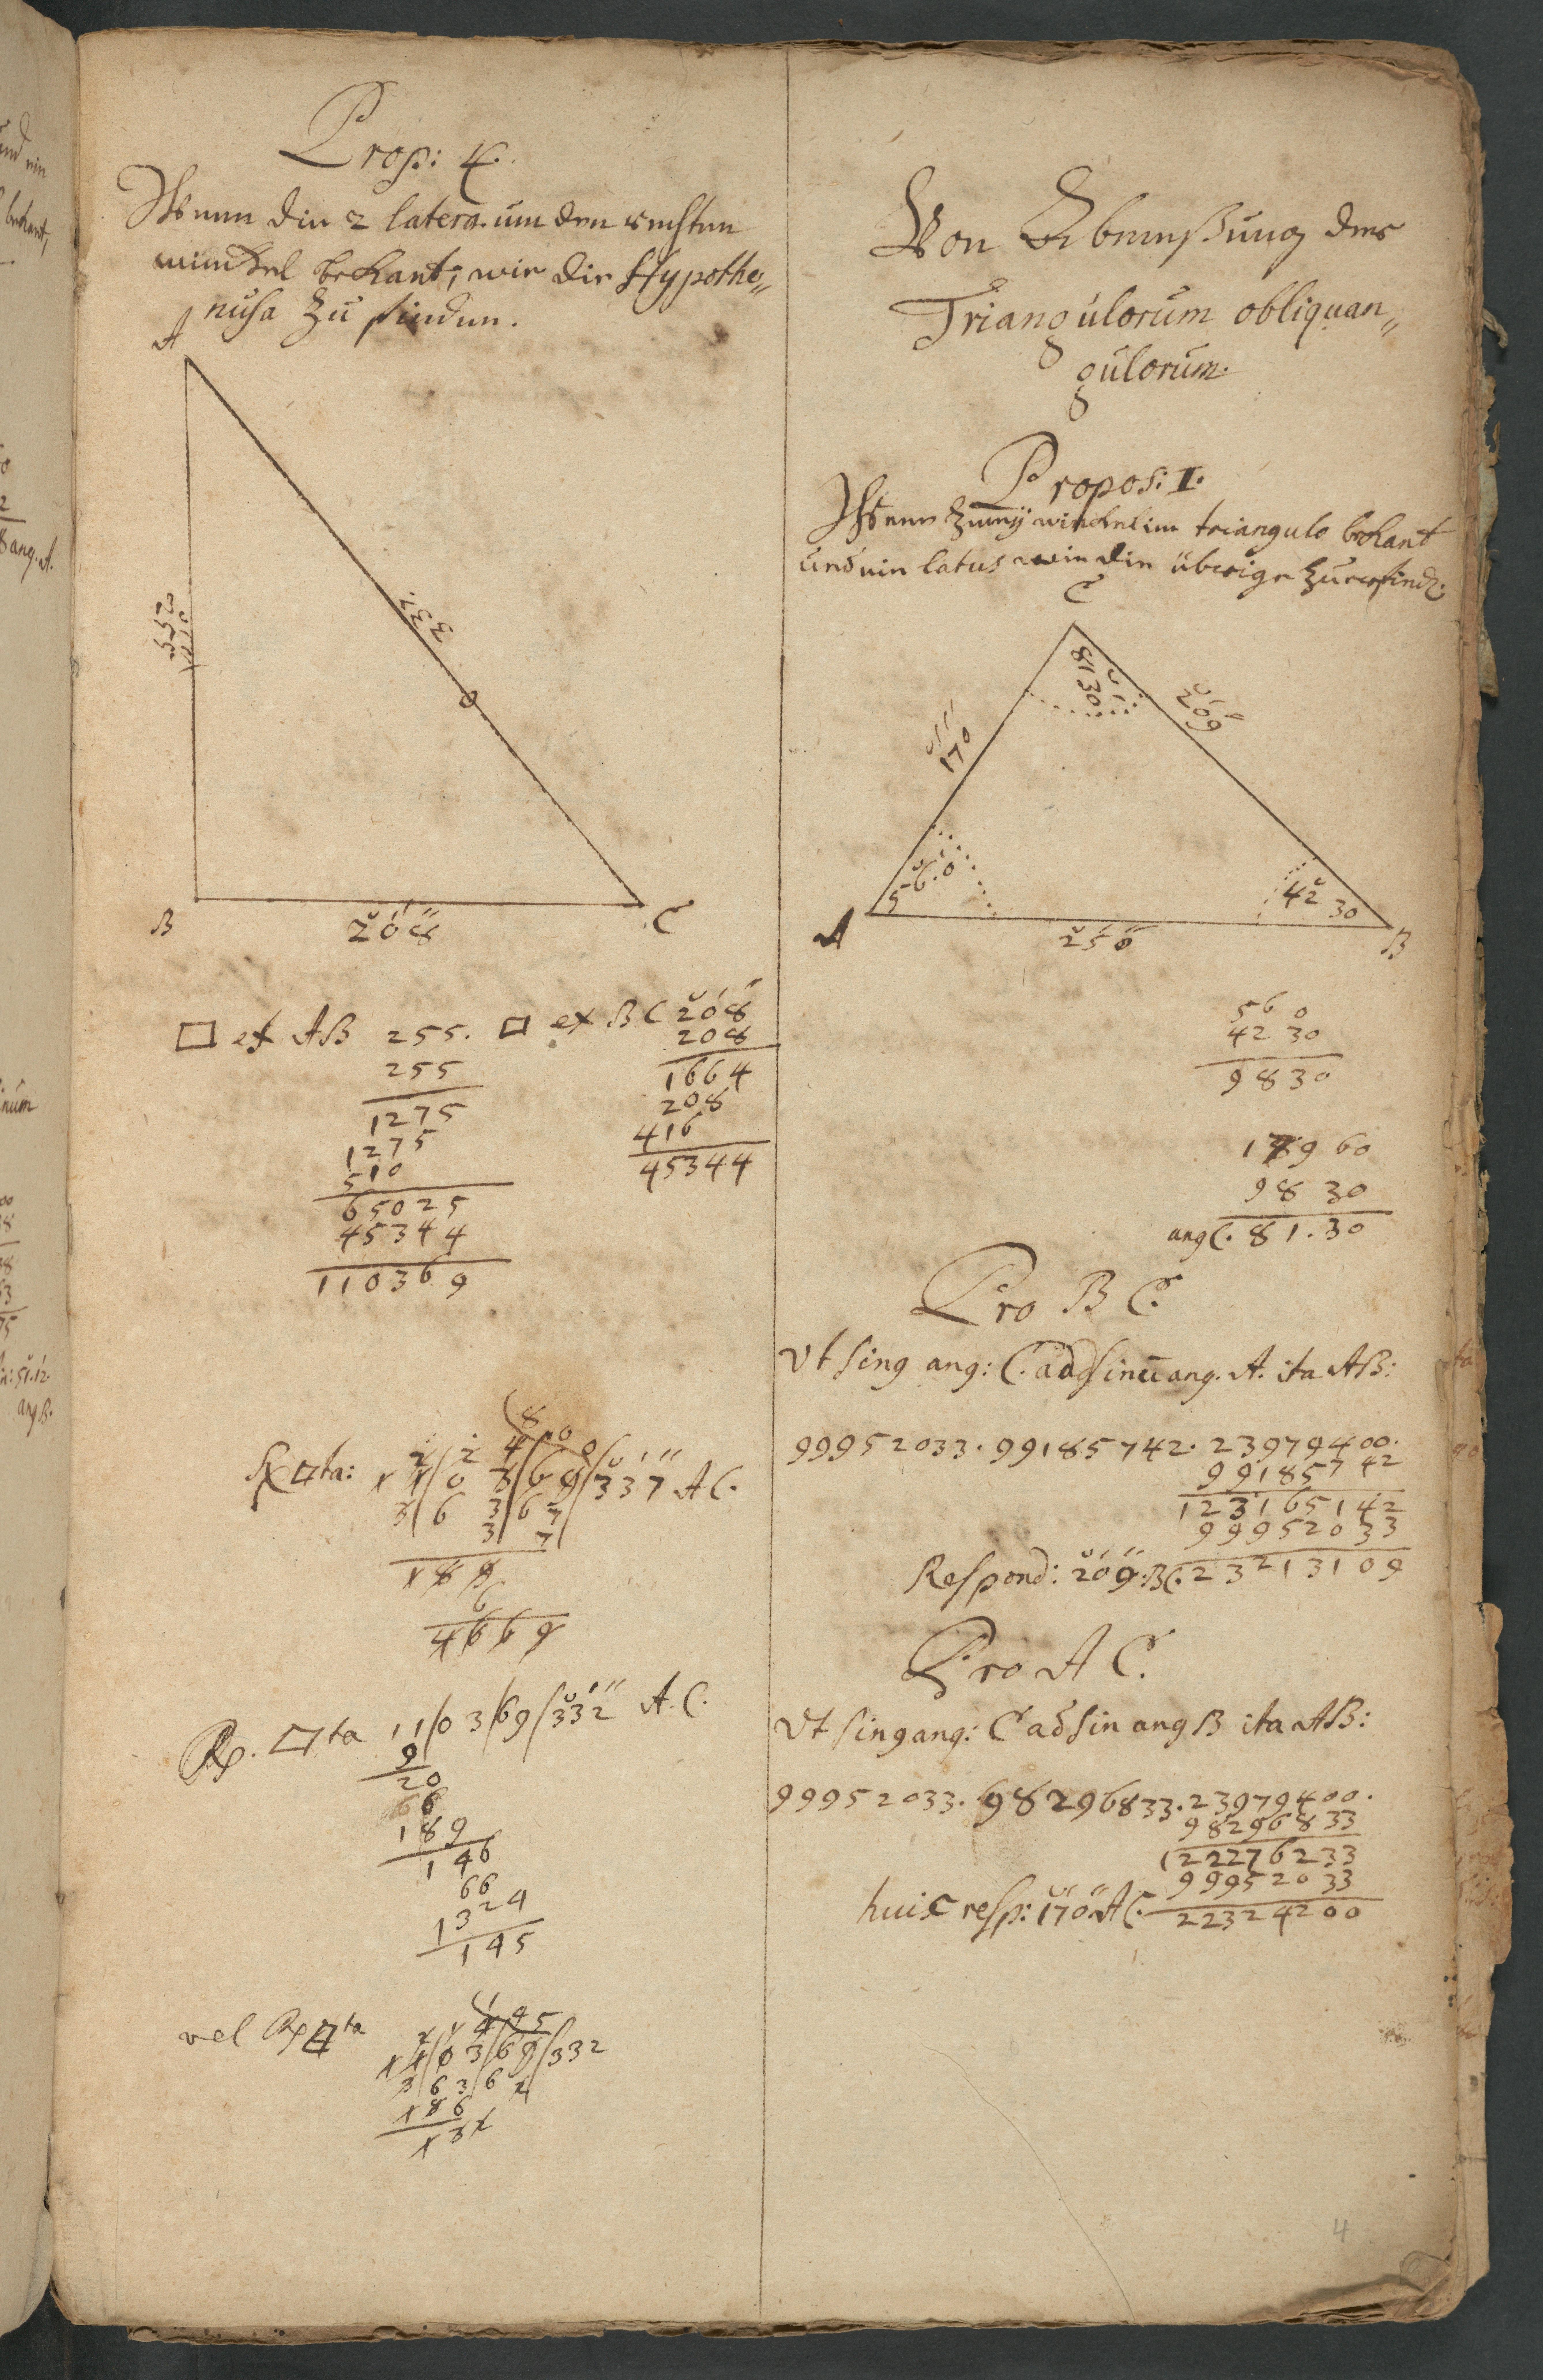 Prop: 4.
Wenn die 2 latera um den rechten
winckel bekant, wie die Hypothe„
nusa zu finden.
A
255
332
B
208
C
□ ex AB 255. □ ex BC 208
255
208
1275
1664
1275
208
510
416
65025
45344
45344
110369
337 AC.
4669
Rx. □ta 11/03/69/332 A.C.
9
20
66
189
146
66
1324
145
vel Rx □ta
145
11/03/69/332
Von Abmeßung der
Triangulorum obliquan„
gulorum.
Propos: I.
Wenn zweÿ winckel im triangulo bekant
und ein latus wie die übrige zu erfind.
C
81 30
209
170
56.0
42 30
A
250
B
56 0
42 30
98 30
179 60
98 30
ang C. 81.30
Pro BC.
Vt sing ang: C. ad sinu ang. A. ita AB:
99952033. 99185742. 23979400.
99185742
123165142
99952033
Respond: 209. BC. 232131 09
Pro AC.
Vt sing ang: C ad sin ang B ita AB:
99952033. 98296833. 23979400.
98296833
122276233
99952033
huic resp: 170 AC. 22324200
4